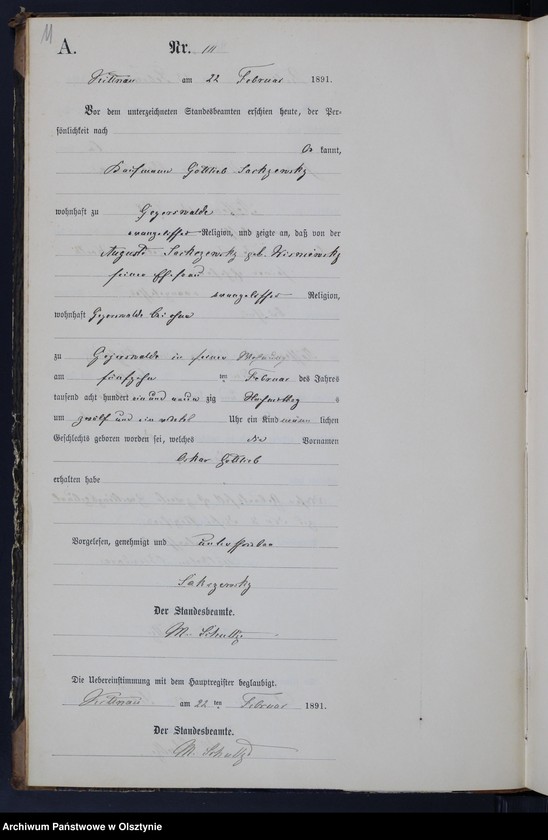 11
A.
Nr. 10
am 22 Februar 1891.
Vor dem unterzeichneten Standesbeamten erschien heute, der Per-
sönlichkeit nach
kannt,
Kaufmann Gottlieb
wohnhaft zu Geyerswalde
evangelischer Religion, und zeigte an, daß von der
geb.
seiner Ehefrau
evangelischer Religion,
wohnhaft Geyerswalde bei ihm
zu Geyerswalde in seiner Wohnung
am fünfzehn ten Februar des Jahres
tausend acht hundert ein und neun zig Nachmittag s
um zwölf und ein Uhr ein Kind männ lichen
Geschlechts geboren worden sei, welches die Vornamen
Oskar Gottlieb
erhalten habe
Vorgelesen, genehmigt und unterschrieben
Der Standesbeamte.
M. Schultz
Die Uebereinstimmung mit dem Hauptregister beglaubigt.
am 22 ten Februar 1891.
Der Standesbeamte.
M. Schultz
Archiwum Państwowe w Olsztynie